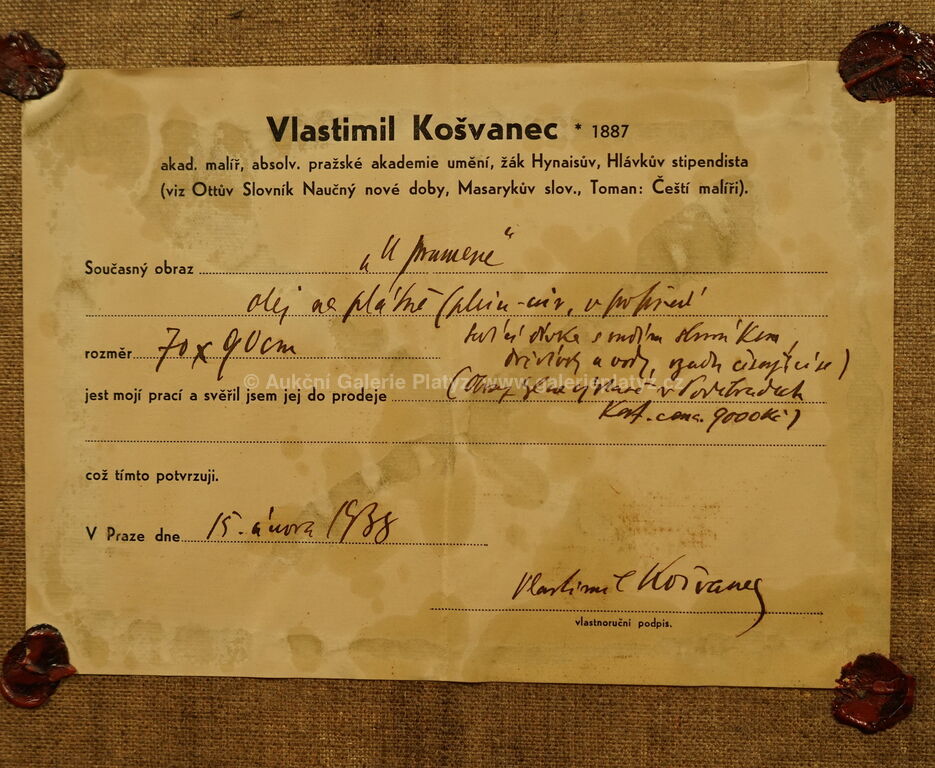 Vlastimil Košvanec * 1887
akad. malíř, absolv. pražské akademie umění, žák Hynaisův, Hlávkův stipendista
(viz Ottův Slovník Naučný nové doby, Masarykův slov., Toman: Čeští malíři).
Současný obraz „U pramene“
olej na plátně (plein-air, v popředí
sedící dívka s
rozměr 70 x 90 cm
a vody,
© Aukční Galerie Platýz, www.galerieplatyz.cz
jest mojí prací a svěřil jsem jej do prodeje (Obraz v Poděbradech
Kat. cena 9000 Kč)
což tímto potvrzuji.
V Praze dne 15. února 1938
Vlastimil Košvanec
vlastnoruční podpis.